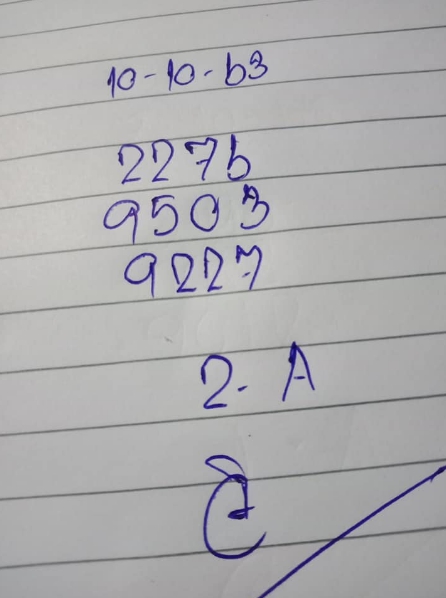 10-10-63
2276
9503
9227
2- A